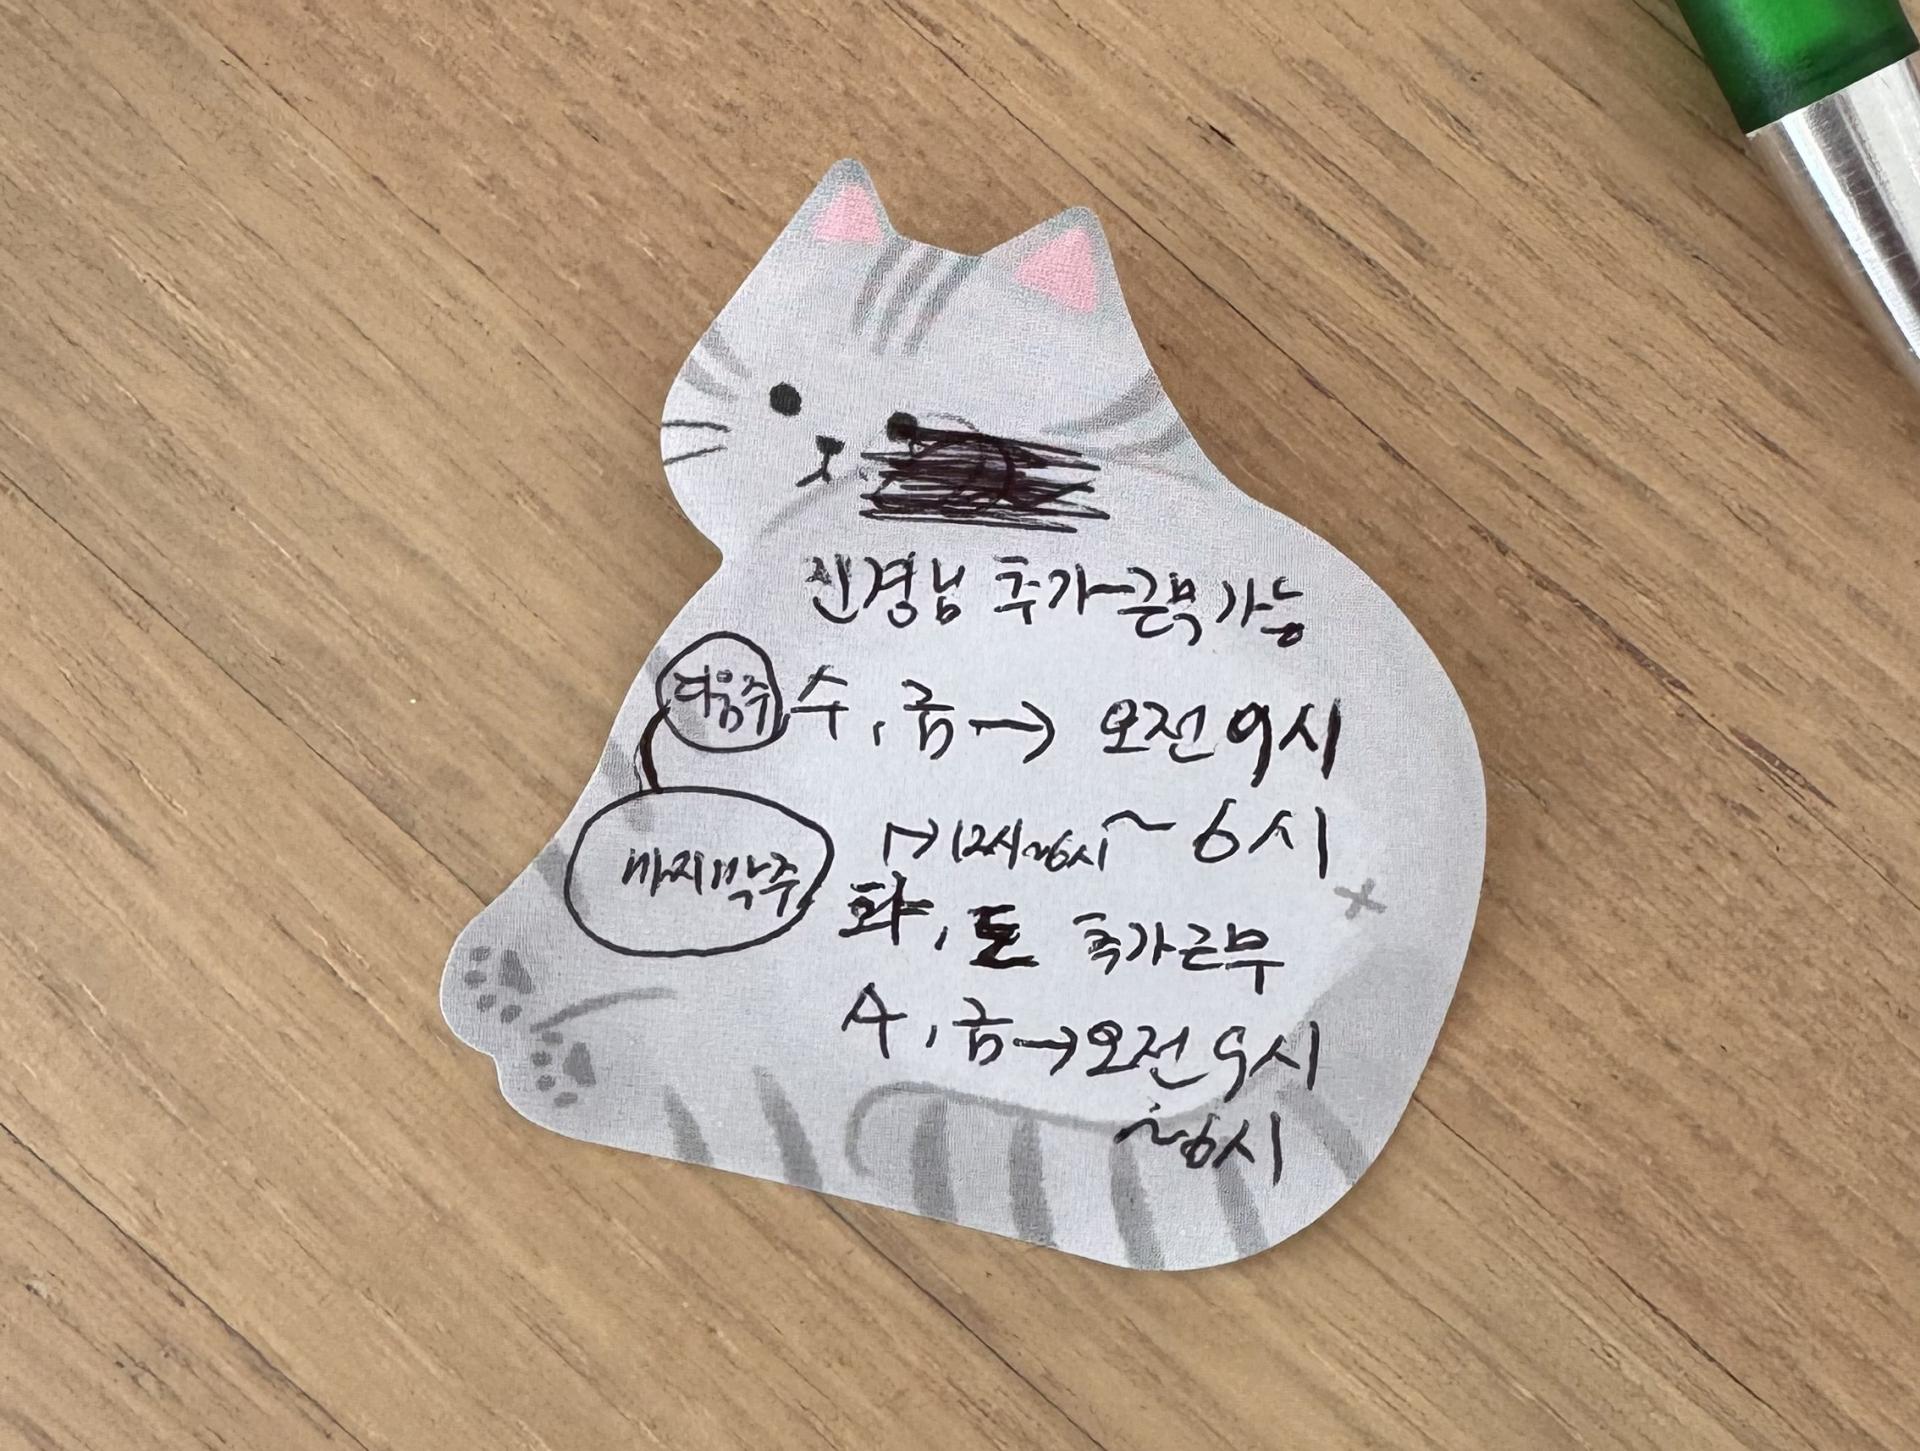 신경님 추가근무 가능
다음주 수, 금 → 오전 9시
~ 6시
↱ 12시~6시
마지막주 화, 토 추가근무
수, 금 → 오전 9시
~6시